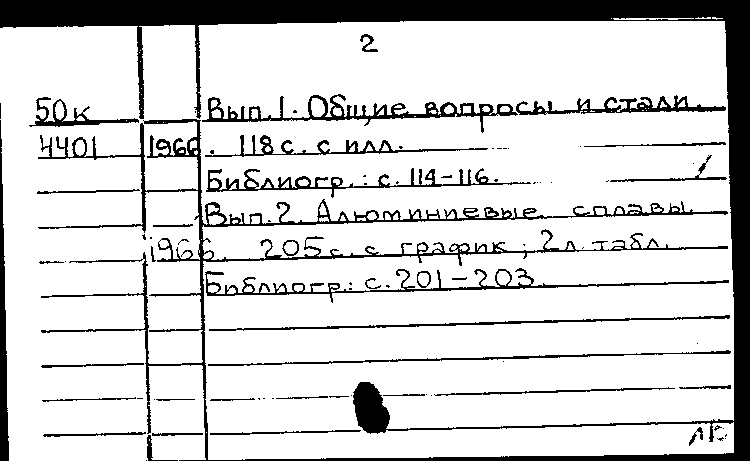 2
50к Вып.1. Общие вопросы и стали.
4401 1966. 118 с. с илл.
Библиогр.: с. 114-116.
Вып.2. Алюминиевые сплавы
1966. 205 с. с график; 2 л. табл.
Библиогр.: с. 201-203.